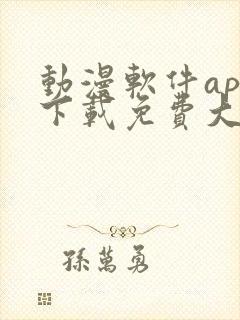 動漫軟件ap
下載免費大
孫萬勇